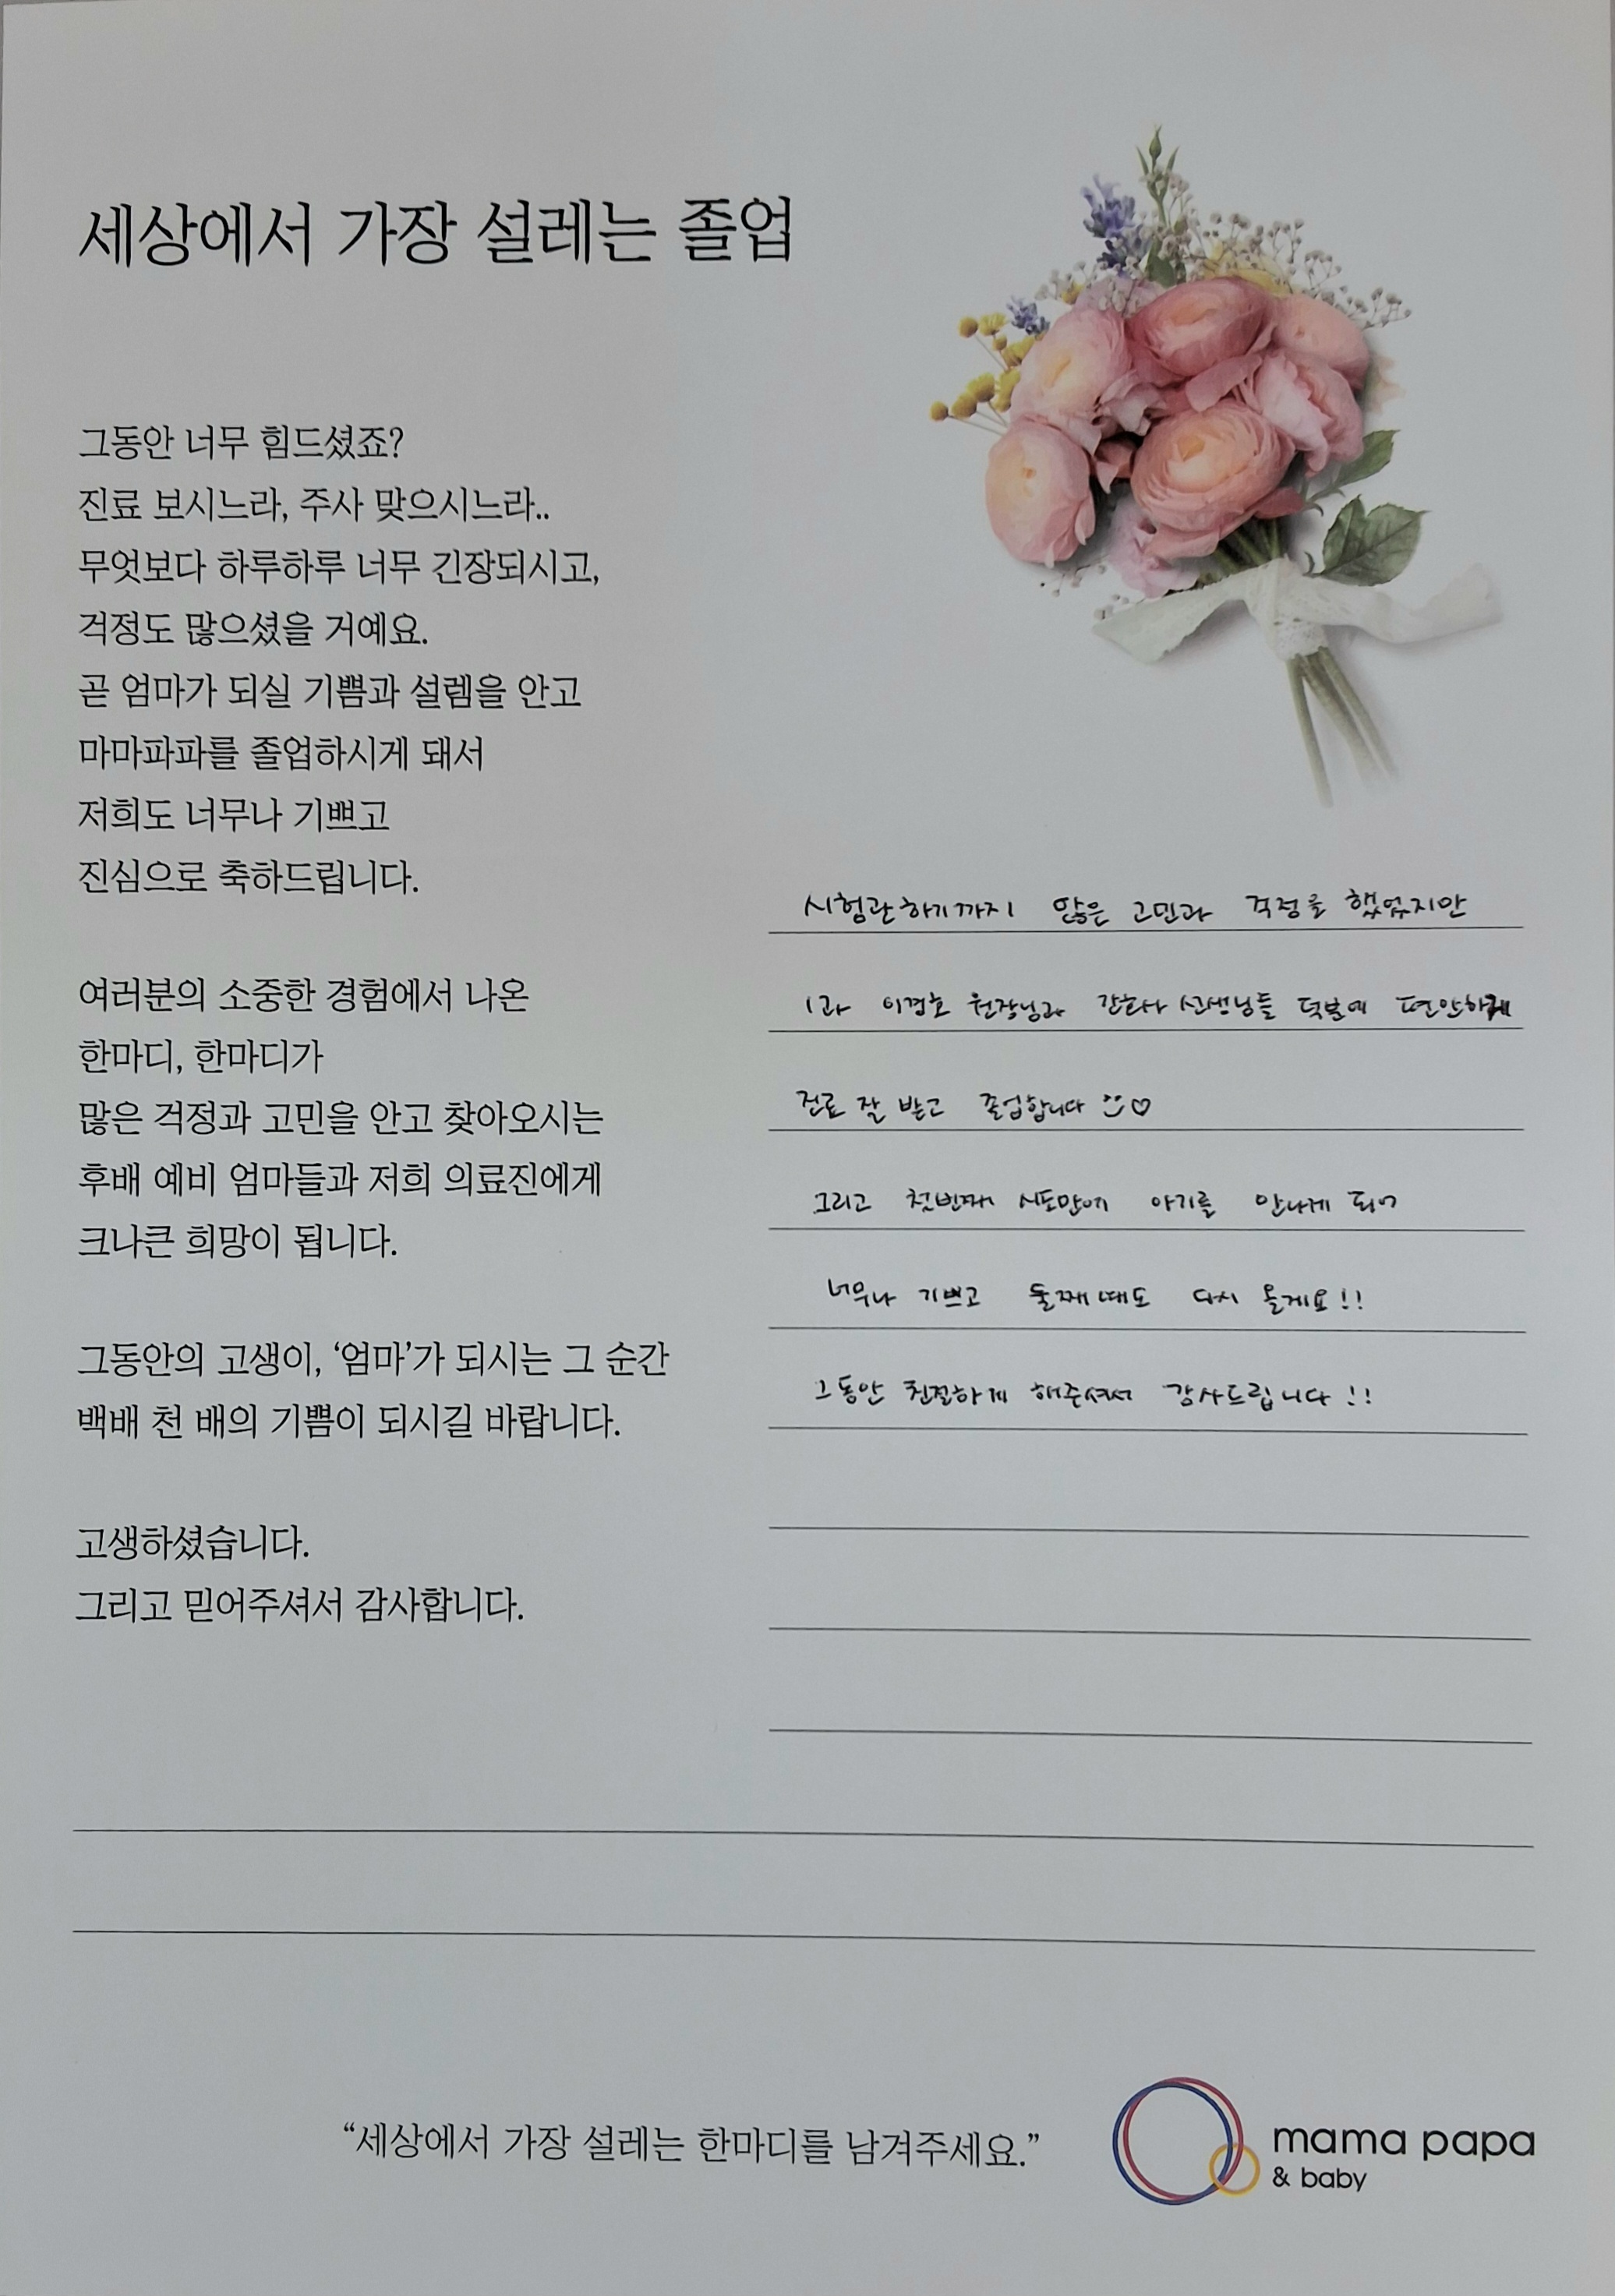 세상에서 가장 설레는 졸업
그동안 너무 힘드셨죠?
진료 보시느라, 주사 맞으시느라..
무엇보다 하루하루 너무 긴장되시고,
걱정도 많으셨을 거예요.
곧 엄마가 되실 기쁨과 설렘을 안고
마마파파를 졸업하시게 돼서
저희도 너무나 기쁘고
진심으로 축하드립니다.
여러분의 소중한 경험에서 나온
한마디, 한마디가
많은 걱정과 고민을 안고 찾아오시는
후배 예비 엄마들과 저희 의료진에게
크나큰 희망이 됩니다.
그동안의 고생이, ‘엄마’가 되시는 그 순간
백배 천 배의 기쁨이 되시길 바랍니다.
고생하셨습니다.
그리고 믿어주셔서 감사합니다.
시험관하기까지 많은 고민과 걱정을 했었지만
1과 이경호 원장님과 간호사 선생님들 덕분에 편안하게
진료 잘 받고 졸업합니다
그리고 첫번째 시도만에 아기를 만나게 되어
너무나 기쁘고 둘째때도 다시 올게요!!
그동안 친절하게 해주셔서 감사드립니다!!
“세상에서 가장 설레는 한마디를 남겨주세요.”
mama papa
& baby